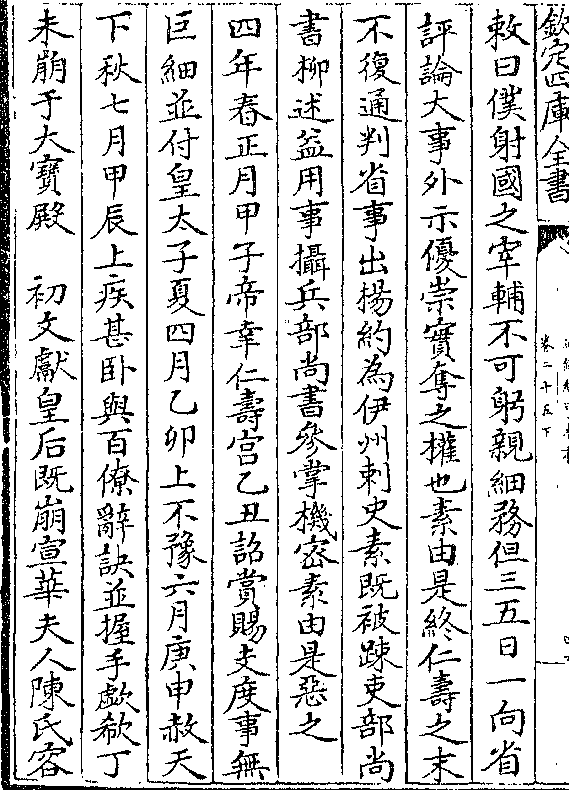 欽定四庫全書
卷二十五下
敕曰僕射國之宰輔不可躬親細務但三五日一向省
評論大事外示優崇實奪之權也素由是終仁壽之末
不復通判省事出楊約為伊州刺史素既被疎吏部尚
書柳述益用事攝兵部尚書參掌機密素由是惡之
四年春正月甲子帝幸仁壽宫乙丑詔賞賜支度事無
巨細並付皇太子夏四月乙卯上不豫六月庚申赦天
下秋七月甲辰上疾甚卧與百僚辭訣並握手歔欷丁
未崩于大寶殿 初文獻皇后既崩宣華夫人陳氏容